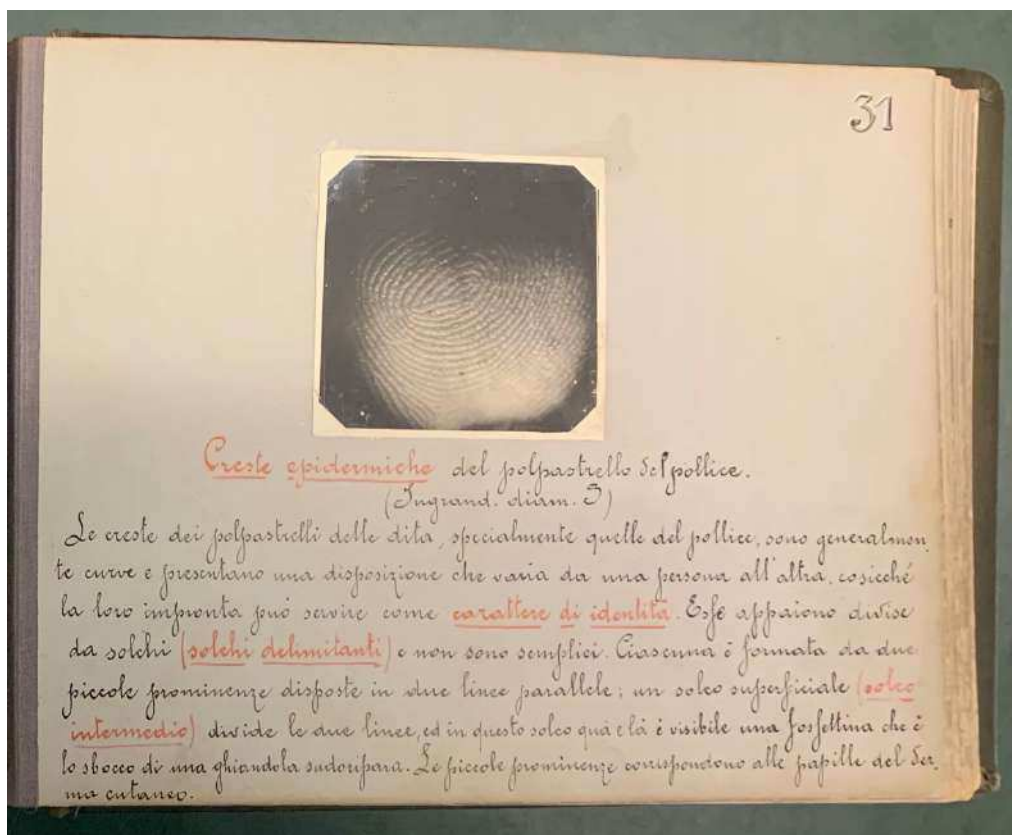 31
Creste epidermiche del polpastrello del pollice.
(Ingrand. diam. 3)
Le creste dei polpastrelli delle dita, specialmente quelle del pollice, sono generalmen
te curve e presentano una disposizione che varia da una persona all'altra, cosicché
la loro impronta può servire come carattere di identità. Esse appaiono divise
da solchi (solchi delimitanti) e non sono semplici. Ciascuna è formata da due
piccole prominenze disposte in due linee parallele; un solco superficiale (solco
intermedio) divide le due linee, ed in questo solco quà e là è visibile una fossettina che è
lo sbocco di una ghiandola sudoripara. Le piccole prominenze corrispondono alle papille del der
ma cutaneo.